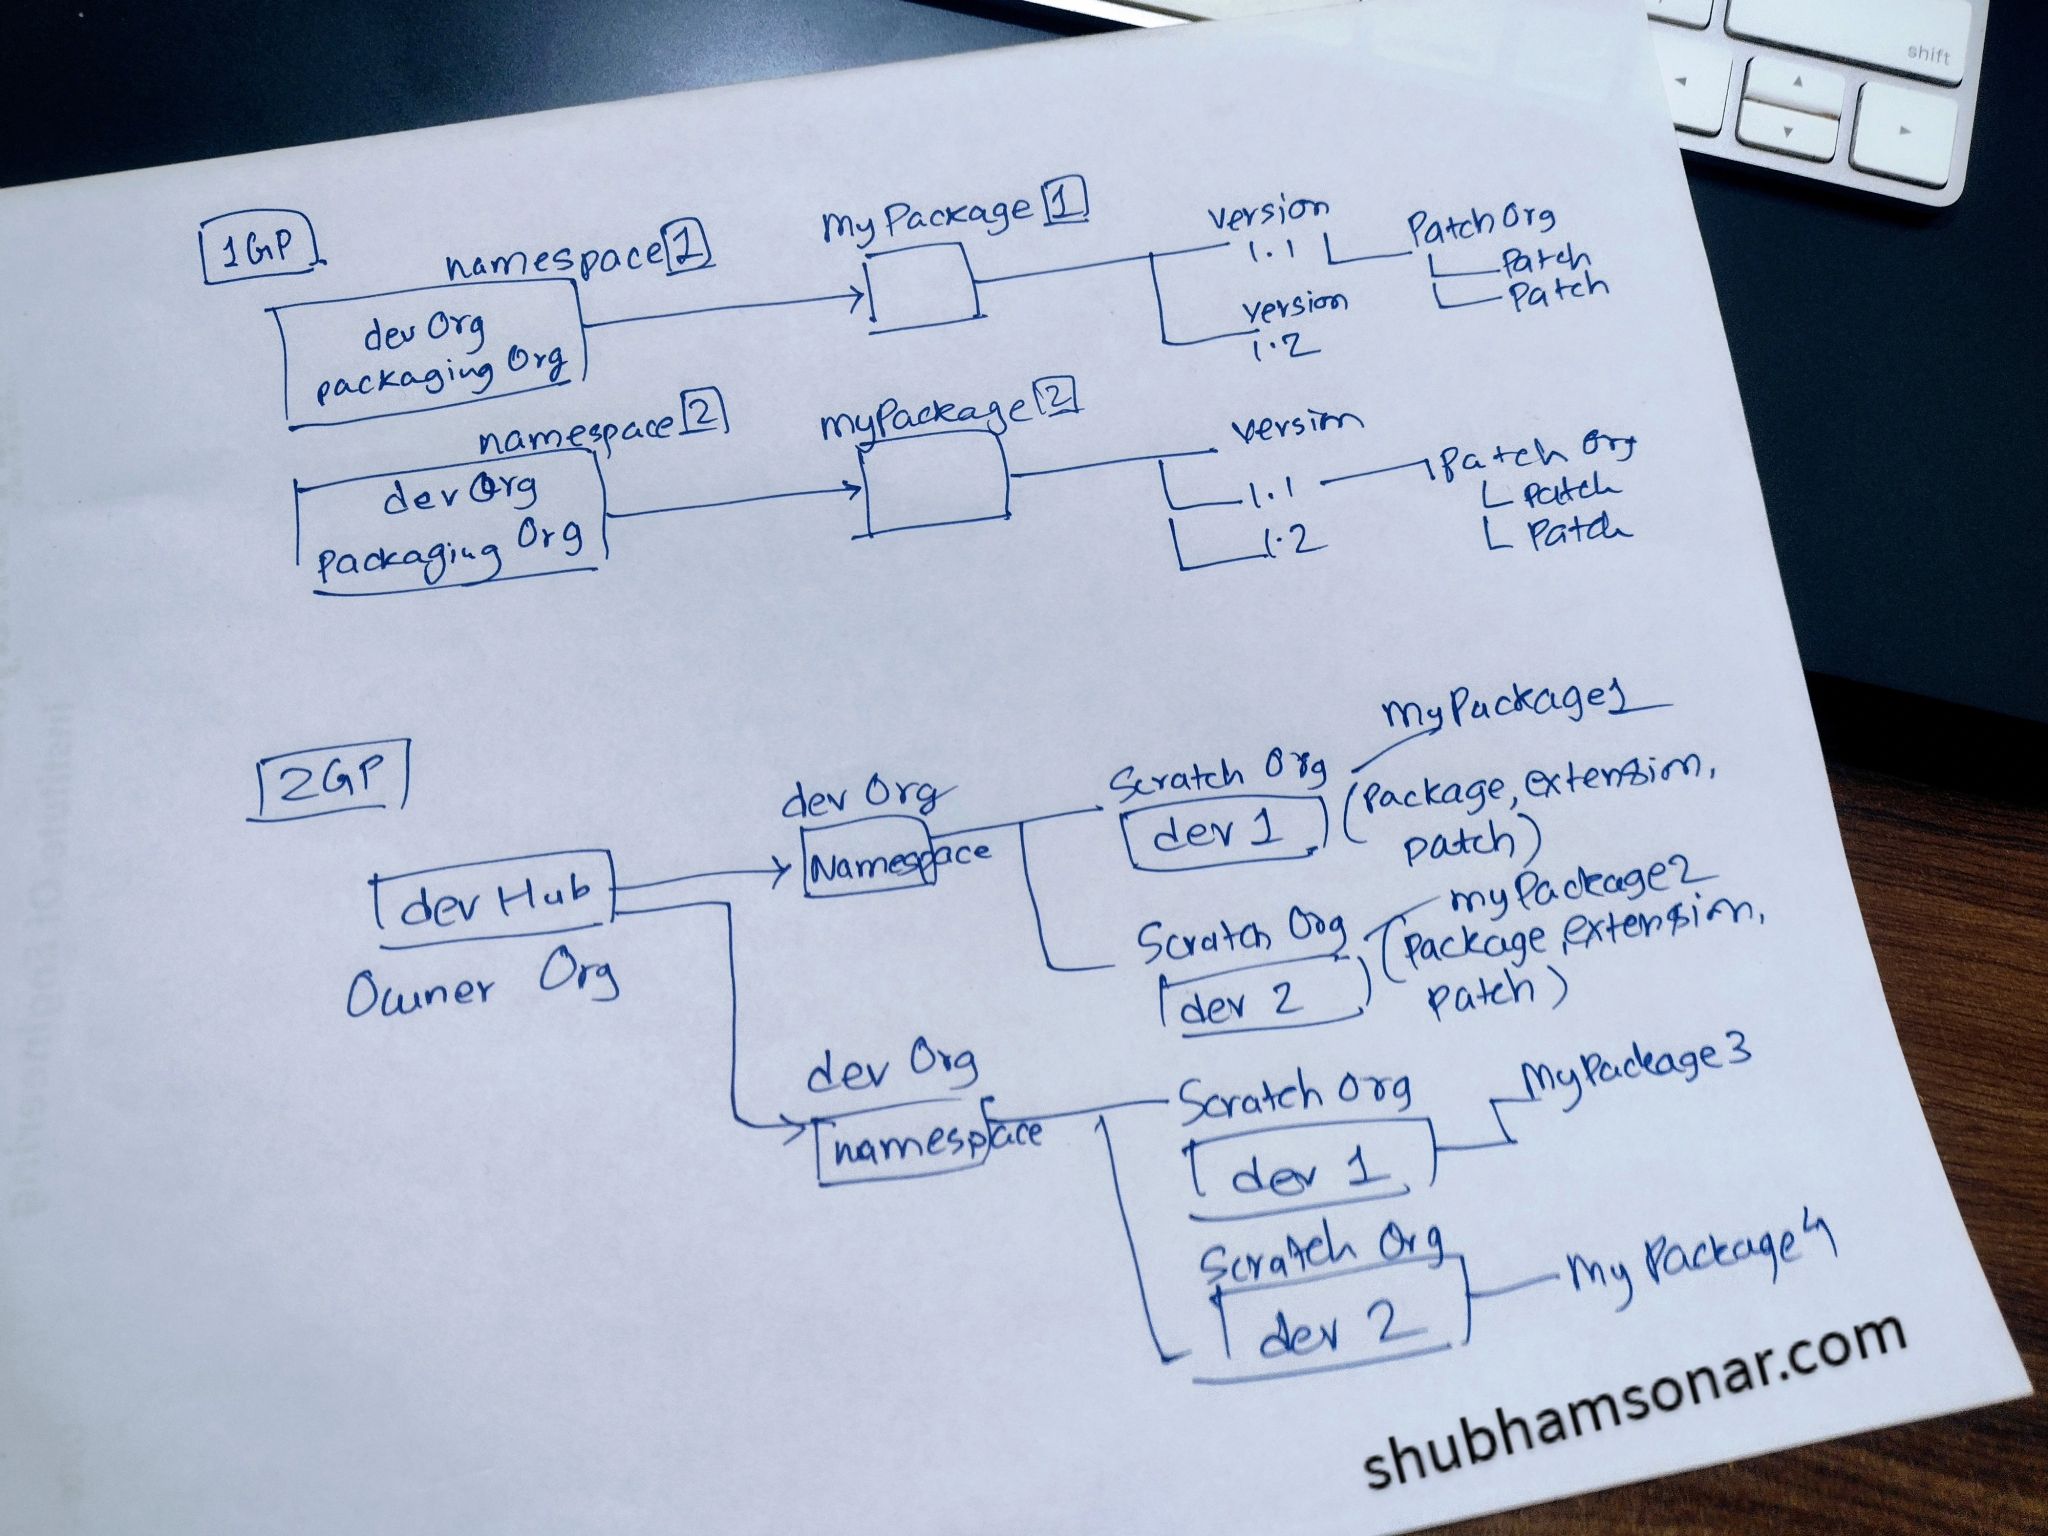 shift
1GP
namespace 1
myPackage 1
version
1.1
Patch Org
Patch
Patch
version
1.2
dev Org
packaging Org
namespace 2
myPackage 2
version
1.1
Patch Org
Patch
Patch
1.2
dev Org
Packaging Org
2GP
dev Hub
Owner Org
dev Org
Namespace
Scratch Org
dev 1
myPackage1
(Package, extension,
patch)
Scratch Org
dev 2
myPackage2
(Package, extension,
patch)
dev Org
namespace
Scratch Org
dev 1
MyPackage3
Scratch Org
dev 2
My Package4
shubhamsonar.com